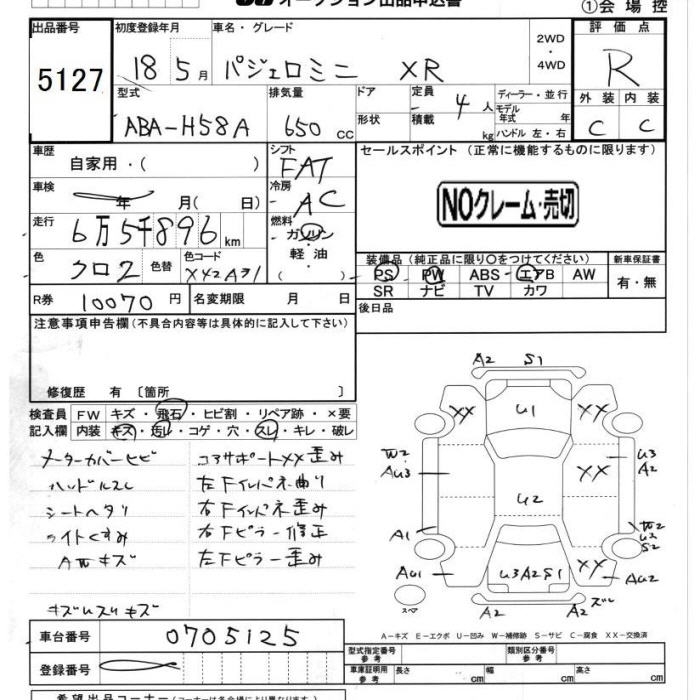 オークション出品申込書
①会場控
出品番号 初度登録年月 車名・グレード 2WD ・ 4WD 評価点
5127 18 5月 パジェロミニ XR R
型式 排気量 ドア 形状 定員 4人 積載 kg ディーラー・並行 モデル 年式 年 ハンドル 左・右 外装 内装
ABA-H58A 650cc C C
車歴 シフト セールスポイント (正常に機能するものに限ります)
自家用・( ) FAT
車検 年 月( 日) 冷房 AC
NOクレーム・売切
走行 燃料
6万5千896km ガソリン・軽油・( )
色 色替 色コード 装備品(純正品に限り○をつけてください) 新車保証書
クロ2 X42A31 PS PW ABS エアB AW 有・無
SR ナビ TV カワ
R券 10070円 名変期限 月 日 後日品
注意事項申告欄(不具合内容等は具体的に記入して下さい)
修復歴 有 〔箇所 〕
検査員 FW キズ・飛石・ヒビ割・リペア跡・×要
記入欄 内装 キズ・汚レ・コゲ・穴・スレ・キレ・破レ
メーターカバーヒビ コアサポートXX歪み
ハンドルスレ 左Fインパネ曲り
シートヘタリ 右Fインパネ歪み
ライトくすみ 右Fピラー修正
AWキズ 左Fピラー歪み
A2 S1
XX U1 XX
W2 AU3 XX U3 A2
U2
A1 W2 U2 S2
AU1 U3A2S1 XX AU2
スペア A2 A2 ズレ
A-キズ E-エクボ U-凹み W-補修跡 S-サビ C-腐食 XX-交換済
車台番号 0705125
型式指定番号 参考 類別区分番号 参考
登録番号 車庫証明用 参考 長さ cm 幅 cm 高さ cm
希望出品コーナー